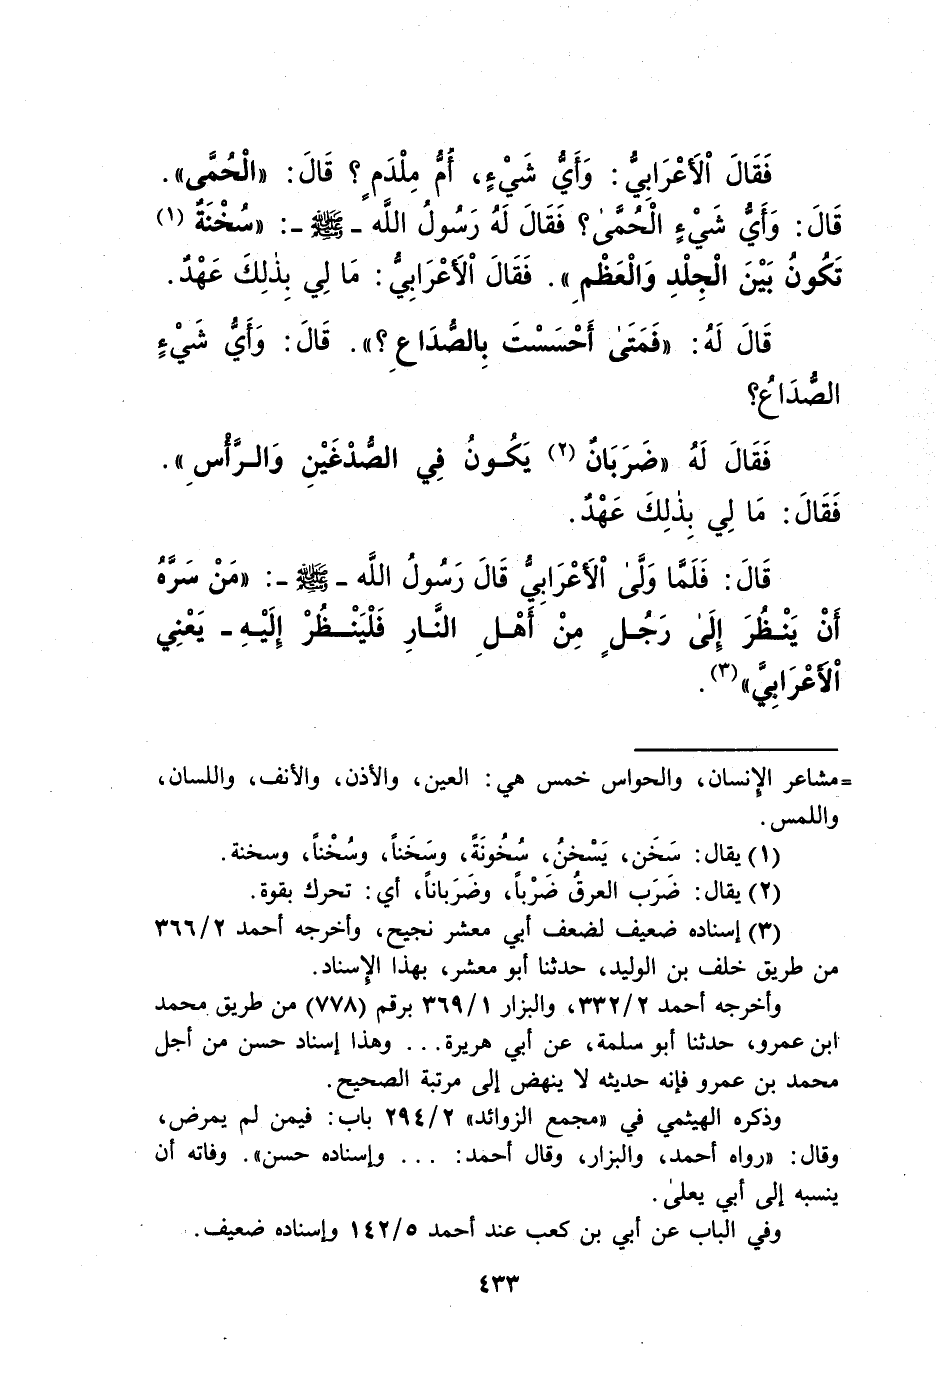 فَقَالَ ٱلْأَعْرَابِيُّ: وَأَيُّ شَيْءٍ، أُمُّ مِلْدَمٍ؟ قَالَ: «الْحُمَّى».
قَالَ: وَأَيُّ شَيْءٍ الْحُمَّىٰ؟ فَقَالَ لَهُ رَسُولُ اللَّه ـ ﷺ ـ: «سُخْنَةٌ (١)
تَكُونُ بَيْنَ الْجِلْدِ وَالْعَظْمِ». فَقَالَ ٱلْأَعْرَابِيُّ: مَا لِي بِذٰلِكَ عَهْدٌ.
قَالَ لَهُ: «فَمَتَىٰ أَحْسَسْتَ بِالصُّدَاعِ؟». قَالَ: وَأَيُّ شَيْءٍ
الصُّدَاعُ؟
فَقَالَ لَهُ «ضَرَبَانٌ (٢) يَكُونُ فِي الصُّدْغَيْنِ وَالرَّأْسِ».
فَقَالَ: مَا لِي بِذٰلِكَ عَهْدٌ.
قَالَ: فَلَمَّا وَلَّىٰ ٱلْأَعْرَابِيُّ قَالَ رَسُولُ اللَّه ـ ﷺ ـ: «مَنْ سَرَّهُ
أَنْ يَنْظُرَ إِلَىٰ رَجُلٍ مِنْ أَهْلِ النَّارِ فَلْيَنْظُرْ إِلَيْهِ ـ يَعْنِي
ٱلْأَعْرَابِيَّ» (٣).
=مشاعر الإنسان، والحواس خمس هي: العين، والأذن، والأنف، واللسان،
واللمس.
(١) يقال: سَخَن، يَسْخنُ، سُخُونَةً، وسَخَناً، وسُخْناً، وسخنة.
(٢) يقال: ضَرَب العرقُ ضَرْباً، وضَرَباناً، أي: تحرك بقوة.
(٣) إسناده ضعيف لضعف أبي معشر نجيح، وأخرجه أحمد ٣٦٦/٢
من طريق خلف بن الوليد، حدثنا أبو معشر، بهذا الإسناد.
وأخرجه أحمد ٣٣٢/٢، والبزار ٣٦٩/١ برقم (٧٧٨) من طريق محمد
ابن عمرو، حدثنا أبو سلمة، عن أبي هريرة... وهذا إسناد حسن من أجل
محمد بن عمرو فإنه حديثه لا ينهض إلى مرتبة الصحيح.
وذكره الهيثمي في «مجمع الزوائد» ٢٩٤/٢ باب: فيمن لم يمرض،
وقال: «رواه أحمد، والبزار، وقال أحمد: ... وإسناده حسن». وفاته أن
ينسبه إلى أبي يعلىٰ.
وفي الباب عن أبي بن كعب عند أحمد ١٤٢/٥ وإسناده ضعيف.
٤٣٣